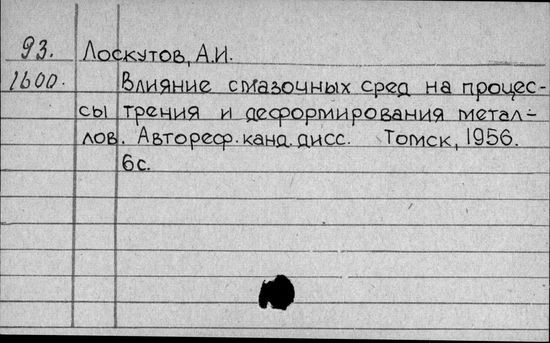 93. Лоскутов, А.И.
1600. Влияние смазочных сред на процес-
сы трения и деформирования метал-
лов. Автореф. канд. дисс. Томск, 1956.
6с.